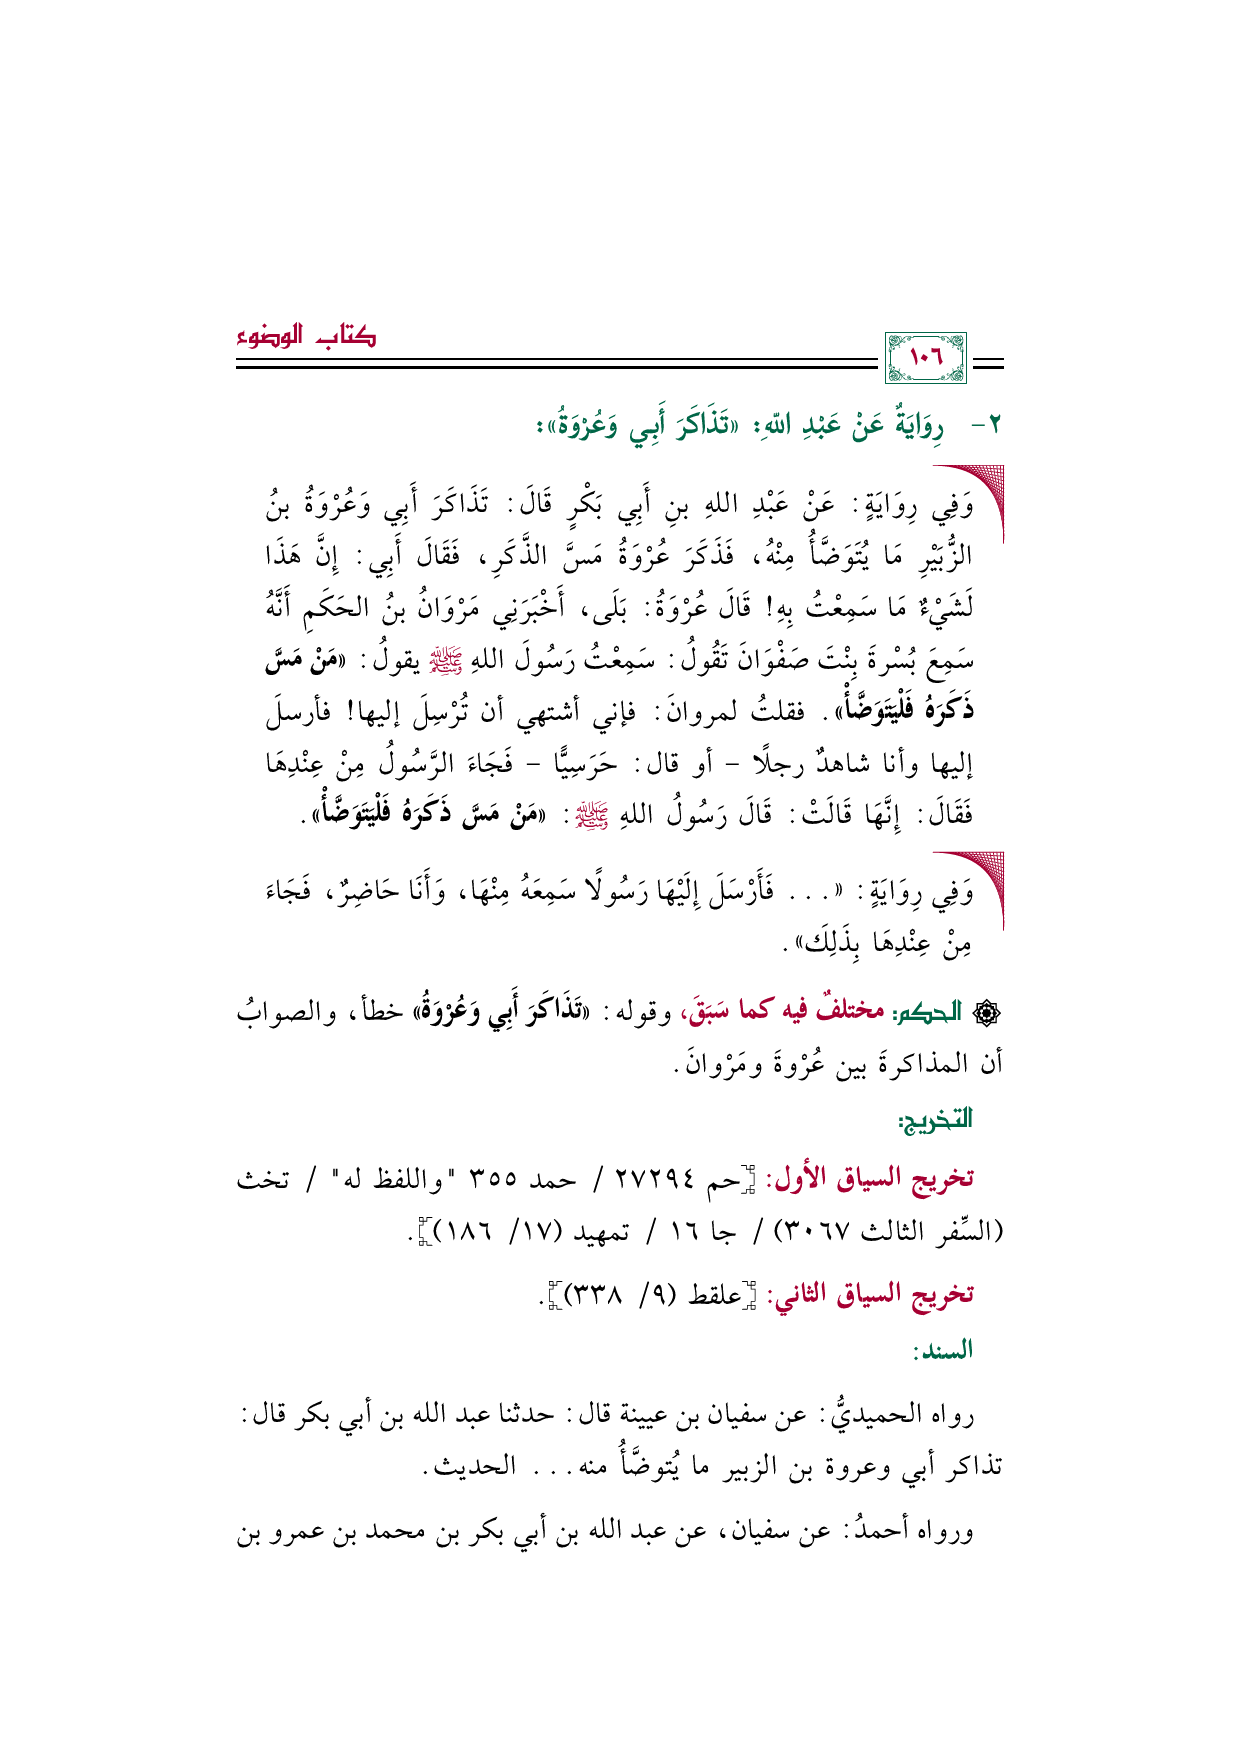 كتاب الوضوء
١٠٦
٢- رِوَايَةٌ عَنْ عَبْدِ اللهِ: «تَذَاكَرَ أَبِي وَعُرْوَةُ»:
وَفِي رِوَايَةٍ: عَنْ عَبْدِ اللهِ بنِ أَبِي بَكْرٍ قَالَ: تَذَاكَرَ أَبِي وَعُرْوَةُ بنُ
الزُّبَيْرِ مَا يُتَوَضَّأُ مِنْهُ، فَذَكَرَ عُرْوَةُ مَسَّ الذَّكَرِ، فَقَالَ أَبِي: إِنَّ هَذَا
لَشَيْءٌ مَا سَمِعْتُ بِهِ! قَالَ عُرْوَةُ: بَلَى، أَخْبَرَنِي مَرْوَانُ بنُ الحَكَمِ أَنَّهُ
سَمِعَ بُسْرةَ بِنْتَ صَفْوَانَ تَقُولُ: سَمِعْتُ رَسُولَ اللهِ ﷺ يقولُ: «مَنْ مَسَّ
ذَكَرَهُ فَلْيَتَوَضَّأْ». فقلتُ لمروانَ: فإني أشتهي أن تُرْسِلَ إليها! فأرسلَ
إليها وأنا شاهدٌ رجلًا - أو قال: حَرَسِيًّا - فَجَاءَ الرَّسُولُ مِنْ عِنْدِهَا
فَقَالَ: إِنَّهَا قَالَتْ: قَالَ رَسُولُ اللهِ ﷺ: «مَنْ مَسَّ ذَكَرَهُ فَلْيَتَوَضَّأْ».
وَفِي رِوَايَةٍ: «... فَأَرْسَلَ إِلَيْهَا رَسُولًا سَمِعَهُ مِنْهَا، وَأَنَا حَاضِرٌ، فَجَاءَ
مِنْ عِنْدِهَا بِذَلِكَ».
الحكم: مختلفٌ فيه كما سَبَقَ، وقوله: «تَذَاكَرَ أَبِي وَعُرْوَةُ» خطأ، والصوابُ
أن المذاكرةَ بين عُرْوةَ ومَرْوانَ.
التخريج:
تخريج السياق الأول: [حم ٢٧٢٩٤ / حمد ٣٥٥ "واللفظ له" / تخث
(السِّفر الثالث ٣٠٦٧) / جا ١٦ / تمهيد (١٧/ ١٨٦)].
تخريج السياق الثاني: [علقط (٩/ ٣٣٨)].
السند:
رواه الحميديُّ: عن سفيان بن عيينة قال: حدثنا عبد الله بن أبي بكر قال:
تذاكر أبي وعروة بن الزبير ما يُتوضَّأُ منه... الحديث.
ورواه أحمدُ: عن سفيان، عن عبد الله بن أبي بكر بن محمد بن عمرو بن